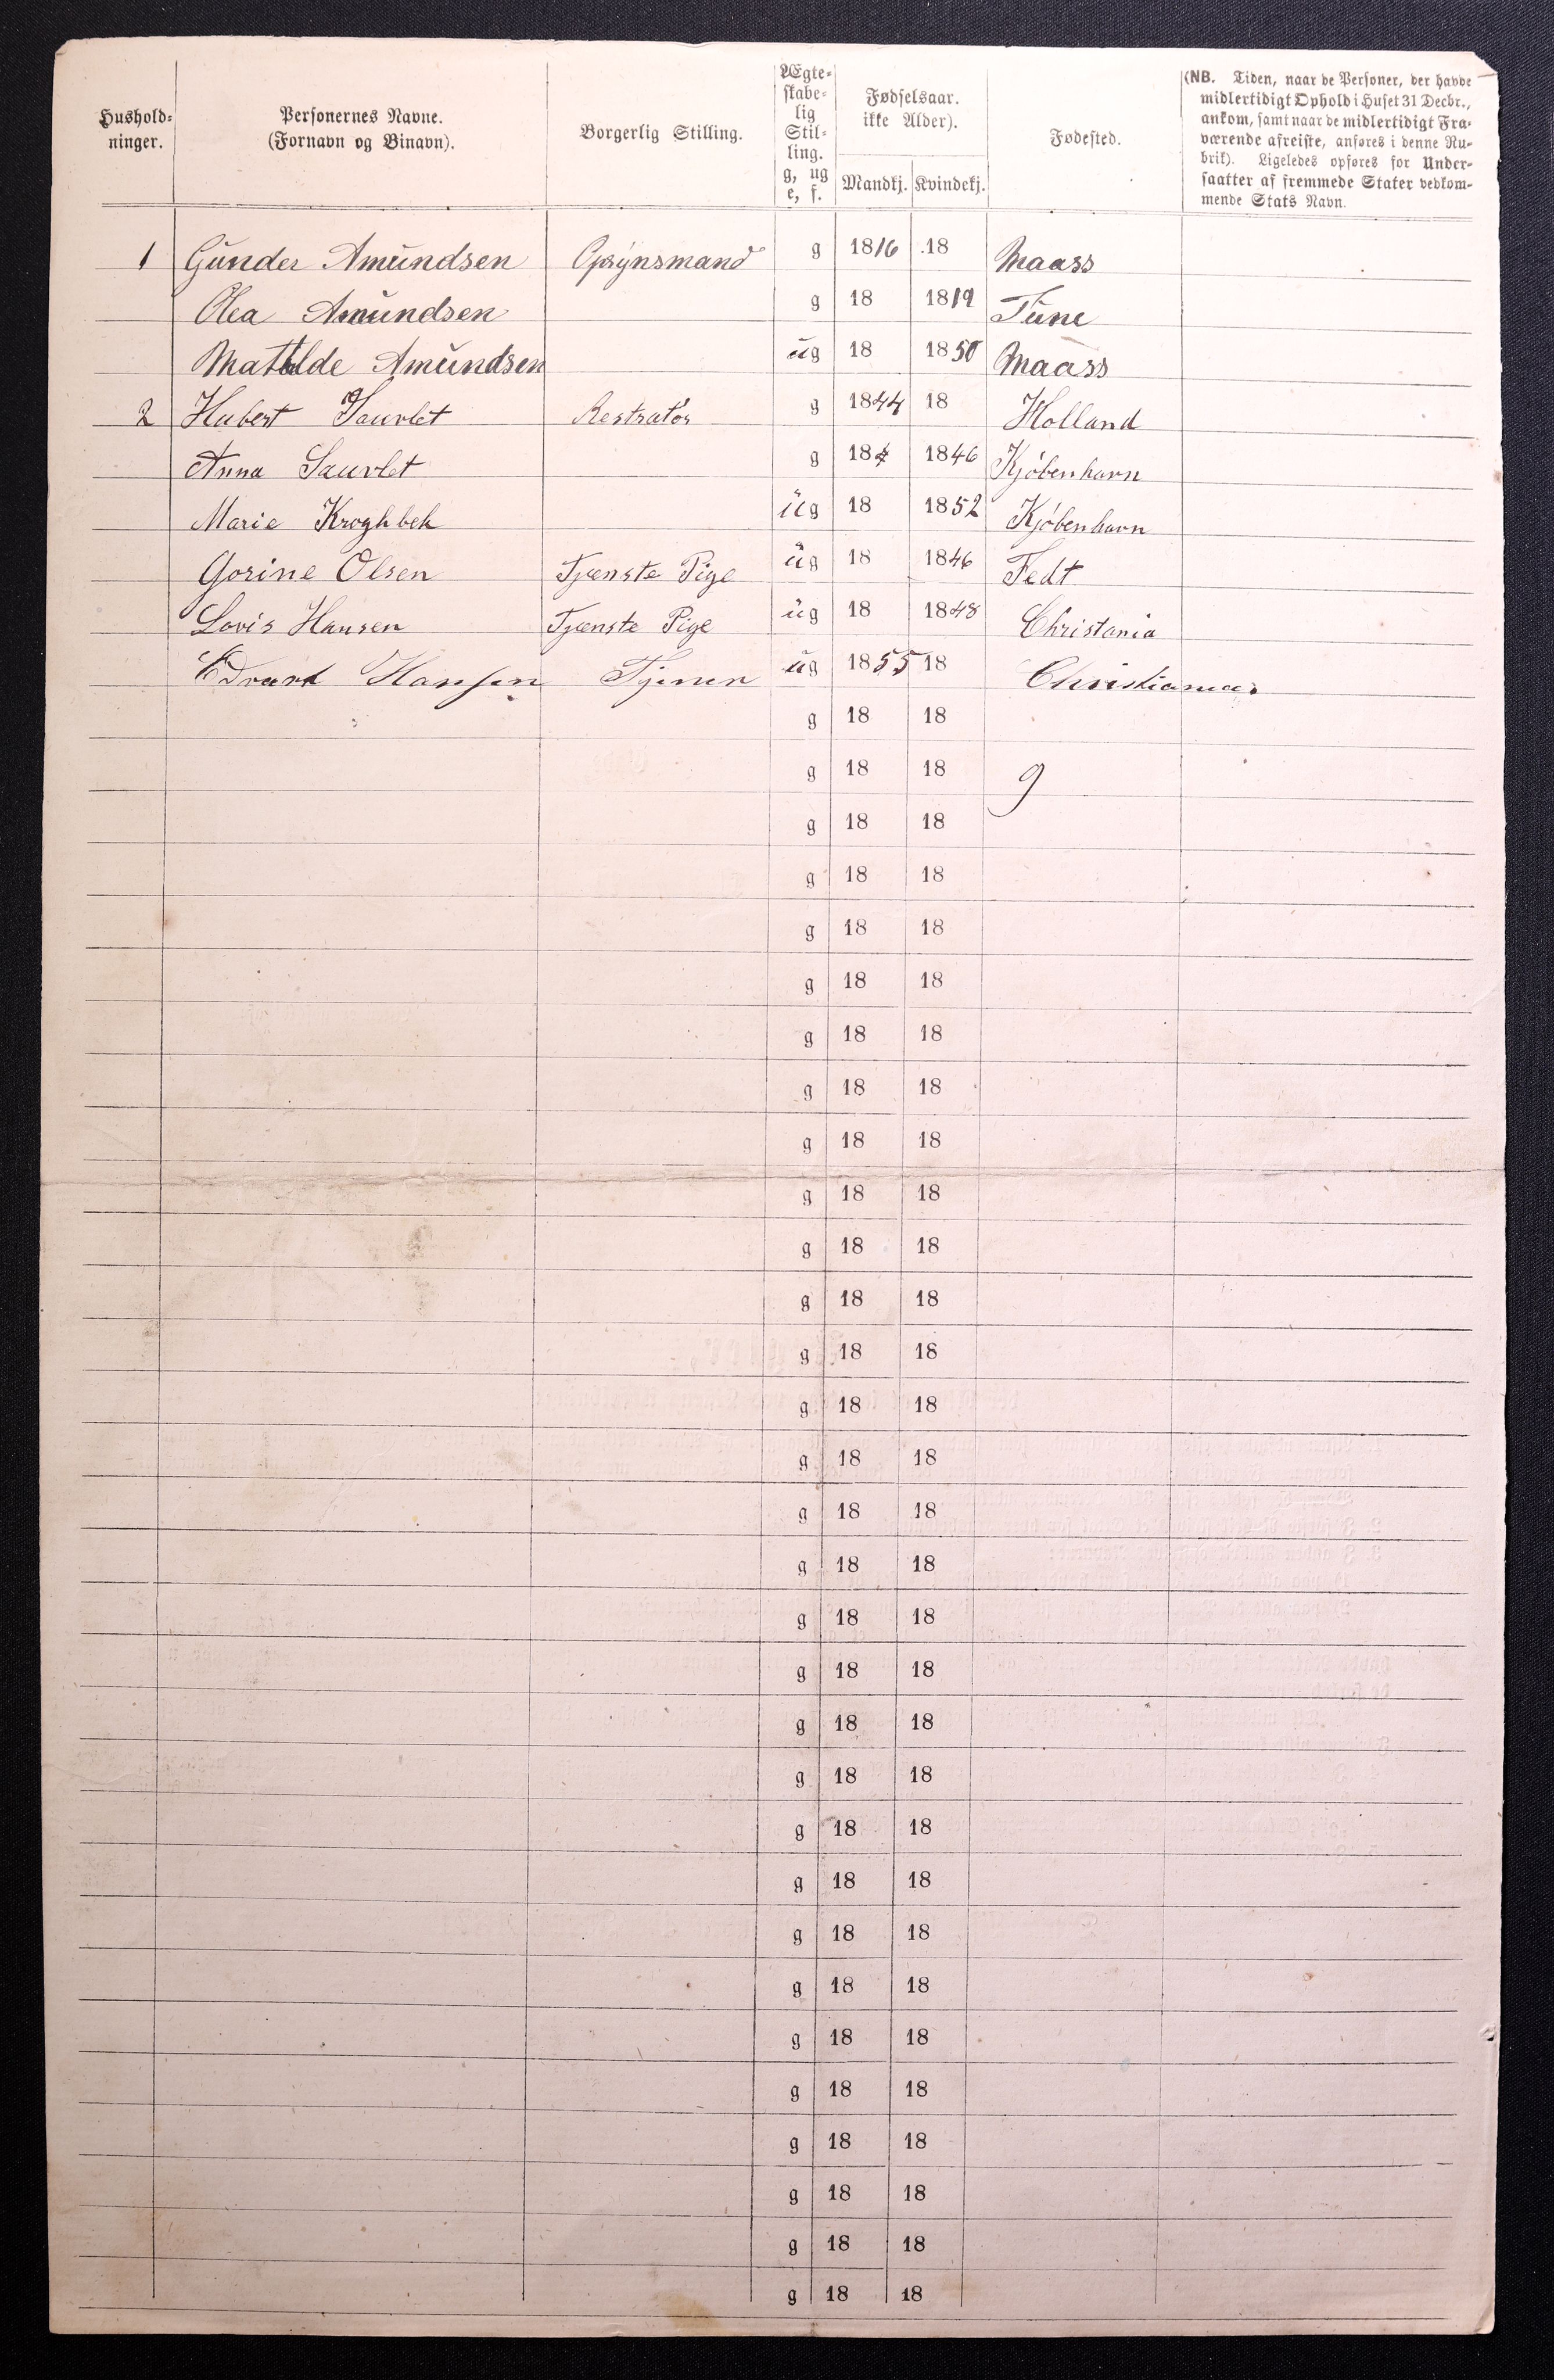 Hushold-
ninger.
Personernes Navne.
(Fornavn og Binavn).
Borgerlig Stilling.
Ægte-
skabe-
lig
Stil-
ling.
g, ug
e, f.
Fødselsaar.
ikke Alder).
Mandkj. Kvindekj.
Fødested.
(NB. Tiden, naar de Personer, der havde
midlertidigt Ophold i Huset 31 Decbr.,
ankom, samt naar de midlertidigt Fra-
værende afreiste, anføres i denne Ru-
brik). Ligeledes opføres for Under-
saatter af fremmede Stater vedkom-
mende Stats Navn.
1 Gunder Amundsen Opsynsmand g 1816 18 Maass
Olea Amundsen g 18 1819 Tune
Mathilde Amundsen ug 18 1850 Maass
2 Hubert Sauvlet Restratør g 1844 18 Holland
Anna Sauvlet g 184 1846 Kjöbenhavn
Marie Kroghbek ug 18 1852 Kjöbenhavn
Gorine Olsen Tjenste Pige ug 18 1846 Fedt
Lovis Hansen Tjenste Pige ug 18 1848 Christania
Edvard Hansen Tjener ug 1855 18 Christiania
g 18 18
g 18 18 9
g 18 18
g 18 18
g 18 18
g 18 18
g 18 18
g 18 18
g 18 18
g 18 18
g 18 18
g 18 18
g 18 18
g 18 18
g 18 18
g 18 18
g 18 18
g 18 18
g 18 18
g 18 18
g 18 18
g 18 18
g 18 18
g 18 18
g 18 18
g 18 18
g 18 18
g 18 18
g 18 18
g 18 18
g 18 18